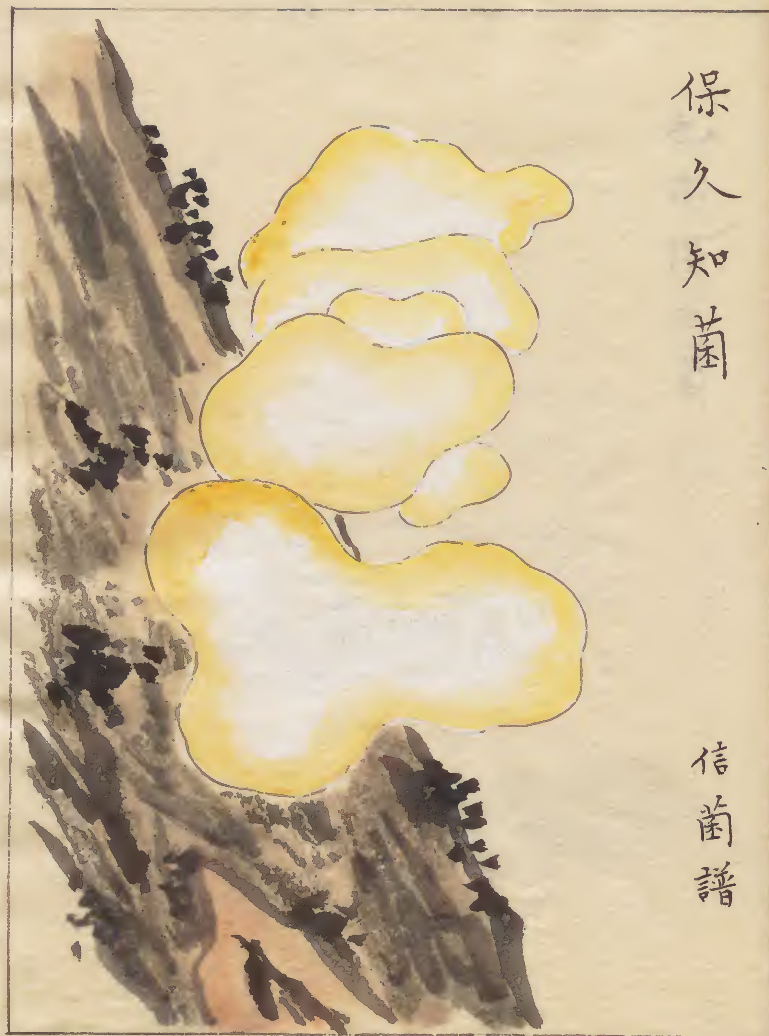 保久知菌
信菌譜